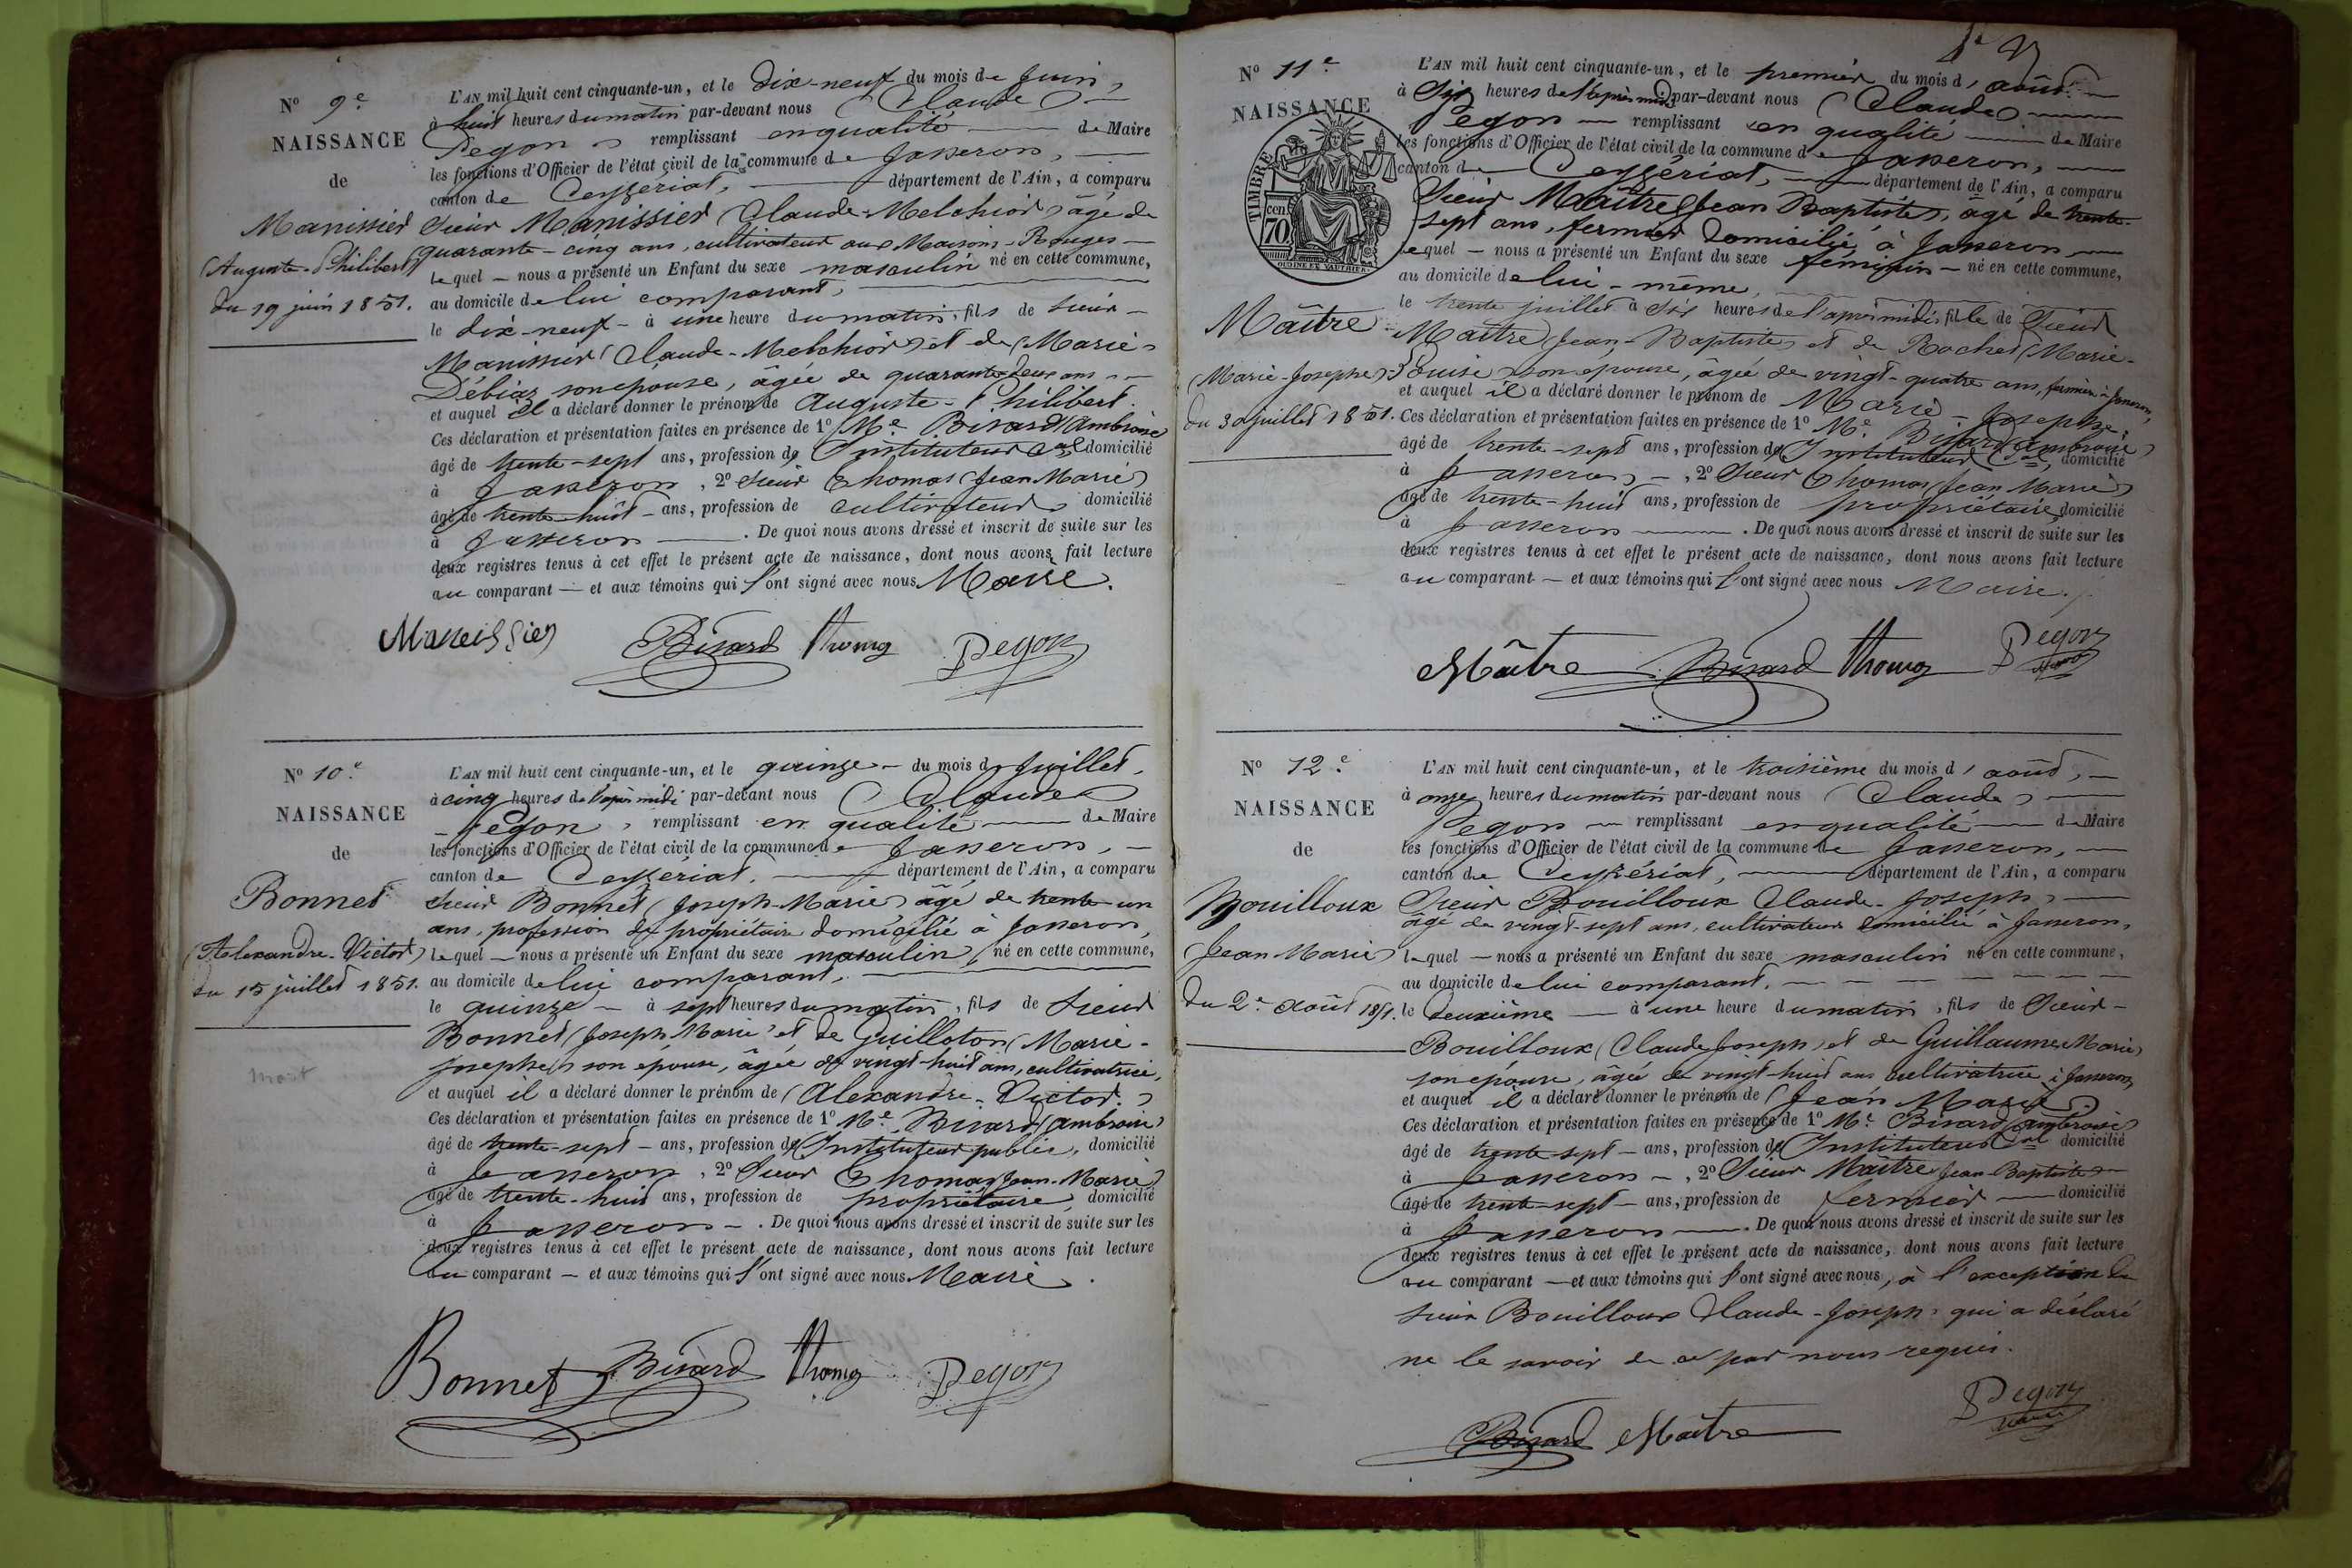 N° 9e
NAISSANCE
de
Manissier
(Auguste-Philibert)
du 19 juin 1851.
L'AN mil huit cent cinquante-un, et le Dix-neuf du mois de Juin,
à huit heures du matin par-devant nous (Claude)
Pegon remplissant en qualité de Maire
les fonctions d'Officier de l'état civil de la commune de Jasseron,
canton de Ceyzériat, département de l'Ain, a comparu
Sieur Manissier (Claude-Melchior) âgé de
quarante-cinq ans, cultivateur aux Maisons-Rouges
lequel nous a présenté un Enfant du sexe masculin né en cette commune,
au domicile de lui comparant,
le dix-neuf à une heure du matin, fils de Sieur
Manissier (Claude-Melchior) et de (Marie)
Débias son épouse, âgée de quarante-deux ans
et auquel il a déclaré donner le prénom de Auguste-Philibert.
Ces déclaration et présentation faites en présence de 1° Me Bisard (Ambroise)
âgé de trente-sept ans, profession d'Instituteur cal domicilié
à Jasseron, 2° Sieur Thomas (Jean Marie)
âgé de trente-huit ans, profession de cultivateur domicilié
à Jasseron. De quoi nous avons dressé et inscrit de suite sur les
deux registres tenus à cet effet le présent acte de naissance, dont nous avons fait lecture
au comparant et aux témoins qui l'ont signé avec nous Maire.
Manissier Bisard Thomas Pegon
N° 10e
NAISSANCE
de
Bonnet
(Alexandre-Victor)
du 15 juillet 1851.
mort
L'AN mil huit cent cinquante-un, et le quinze du mois de Juillet,
à cinq heures de l'après midi par-devant nous (Claude)
Pegon, remplissant en qualité de Maire
les fonctions d'Officier de l'état civil de la commune de Jasseron,
canton de Ceyzériat, département de l'Ain, a comparu
Sieur Bonnet (Joseph-Marie) âgé de trente-un
ans, profession de propriétaire domicilié à Jasseron,
lequel nous a présenté un Enfant du sexe masculin, né en cette commune,
au domicile de lui comparant,
le quinze à sept heures du matin, fils de Sieur
Bonnet (Joseph Marie) et de Guilloton (Marie-
Josephe) son épouse, âgée de vingt-huit ans, cultivatrice,
et auquel il a déclaré donner le prénom de (Alexandre-Victor.)
Ces déclaration et présentation faites en présence de 1° Me Bisard (Ambroise)
âgé de trente-sept ans, profession d'Instituteur public, domicilié
à Jasseron, 2° Sieur Thomas (Jean-Marie)
âgé de trente-huit ans, profession de propriétaire, domicilié
à Jasseron. De quoi nous avons dressé et inscrit de suite sur les
deux registres tenus à cet effet le présent acte de naissance, dont nous avons fait lecture
au comparant et aux témoins qui l'ont signé avec nous Maire.
Bonnet Bisard Thomas Pegon
N° 11e
NAISSANCE
TIMBRE
cen 70.
OUDINE ET VAUTHIER
Maître
(Marie-Josephe)
du 30 juillet 1851.
L'AN mil huit cent cinquante-un, et le premier du mois d'août
à Six heures de l'après midi par-devant nous (Claude)
Pegon remplissant en qualité de Maire
les fonctions d'Officier de l'état civil de la commune de Jasseron,
canton de Ceyzériat, département de l'Ain, a comparu
Sieur Maître (Jean Baptiste), âgé de trente-
sept ans, fermier domicilié à Jasseron
lequel nous a présenté un Enfant du sexe féminin né en cette commune,
au domicile de lui-même,
le trente juillet à Six heures de l'après midi, fille de Sieur
Maître (Jean-Baptiste) et de Rochet (Marie-
Louise) son épouse, âgée de vingt-quatre ans, fermière à Jasseron,
et auquel il a déclaré donner le prénom de Marie-Josephe.
Ces déclaration et présentation faites en présence de 1° Me Bisard (Ambroise)
âgé de trente-sept ans, profession d'Instituteur Cal, domicilié
à Jasseron, 2° Sieur Thomas (Jean Marie)
âgé de trente-huit ans, profession de propriétaire, domicilié
à Jasseron. De quoi nous avons dressé et inscrit de suite sur les
deux registres tenus à cet effet le présent acte de naissance, dont nous avons fait lecture
au comparant et aux témoins qui l'ont signé avec nous Maire.
Maître Bisard Thomas Pegon
N° 12e
NAISSANCE
de
Bouilloux
(Jean Marie)
du 2e août 1851.
L'AN mil huit cent cinquante-un, et le troisième du mois d'août,
à onze heures du matin par-devant nous (Claude)
Pegon remplissant en qualité de Maire
les fonctions d'Officier de l'état civil de la commune de Jasseron,
canton de Ceyzériat, département de l'Ain, a comparu
Sieur Bouilloux Claude-Joseph,
âgé de vingt-sept ans, cultivateur domicilié à Jasseron,
lequel nous a présenté un Enfant du sexe masculin né en cette commune,
au domicile de lui comparant,
le deuxième à une heure du matin, fils de Sieur
Bouilloux (Claude Joseph) et de Guillaume (Marie)
son épouse, âgée de vingt-huit ans cultivatrice à Jasseron
et auquel il a déclaré donner le prénom de (Jean Marie).
Ces déclaration et présentation faites en présence de 1° Me Bisard (Ambroise)
âgé de trente-sept ans, profession d'Instituteur Cal domicilié
à Jasseron, 2° Sieur Maître Jean-Baptiste
âgé de trente-sept ans, profession de fermier domicilié
à Jasseron. De quoi nous avons dressé et inscrit de suite sur les
deux registres tenus à cet effet le présent acte de naissance, dont nous avons fait lecture
au comparant et aux témoins qui l'ont signé avec nous, à l'exception du
sieur Bouilloux Claude-Joseph qui a déclaré
ne le savoir de ce par nous requis.
Bisard Maître Pegon